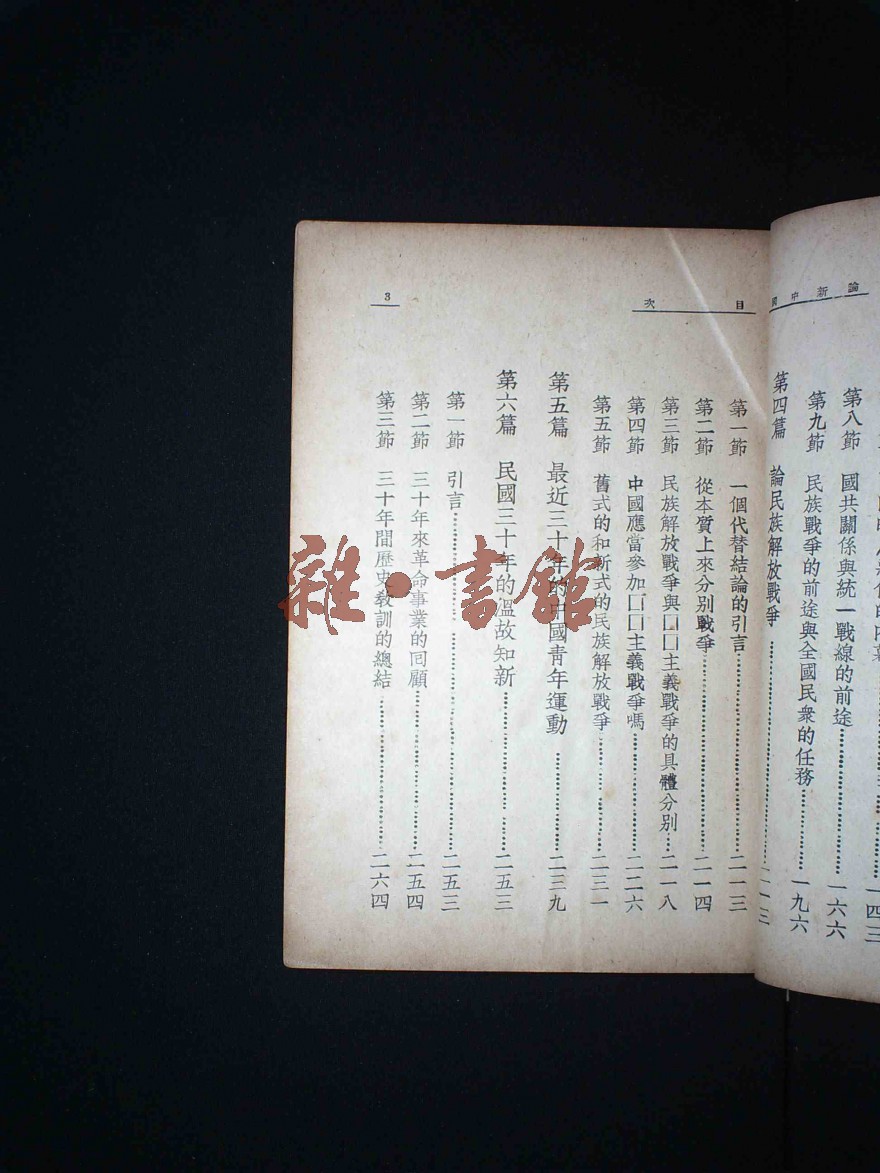 論新中國
第八節 國共關係與統一戰線的前途……一六六
第九節 民族戰爭的前途與全國民衆的任務……一九六
第四篇 論民族解放戰爭……二一三
目次
第一節 一個代替結論的引言……二一三
第二節 從本質上來分別戰爭……二一四
第三節 民族解放戰爭與□□主義戰爭的具體分別……二一八
第四節 中國應當參加□□主義戰爭嗎……二二六
第五節 舊式的和新式的民族解放戰爭……二三一
第五篇 最近三十年的中國靑年運動……二三九
第六篇 民國三十年的溫故知新……二五三
第一節 引言……二五三
第二節 三十年來革命事業的回顧……二五四
第三節 三十年間歷史敎訓的總結……二六四
3
雜·書館